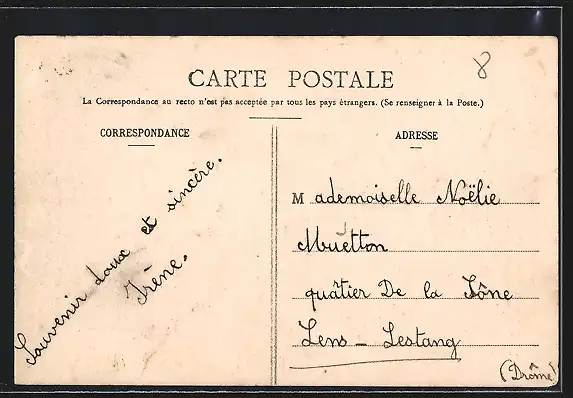 8
CARTE POSTALE
La Correspondance au recto n'est pas acceptée par tous les pays étrangers. (Se renseigner à la Poste.)
CORRESPONDANCE
Souvenir doux et sincère.
Irène.
ADRESSE
Mademoiselle Noëlie
Muetton
quâtier De la Iône
Lens - Lestang
(Drôme)